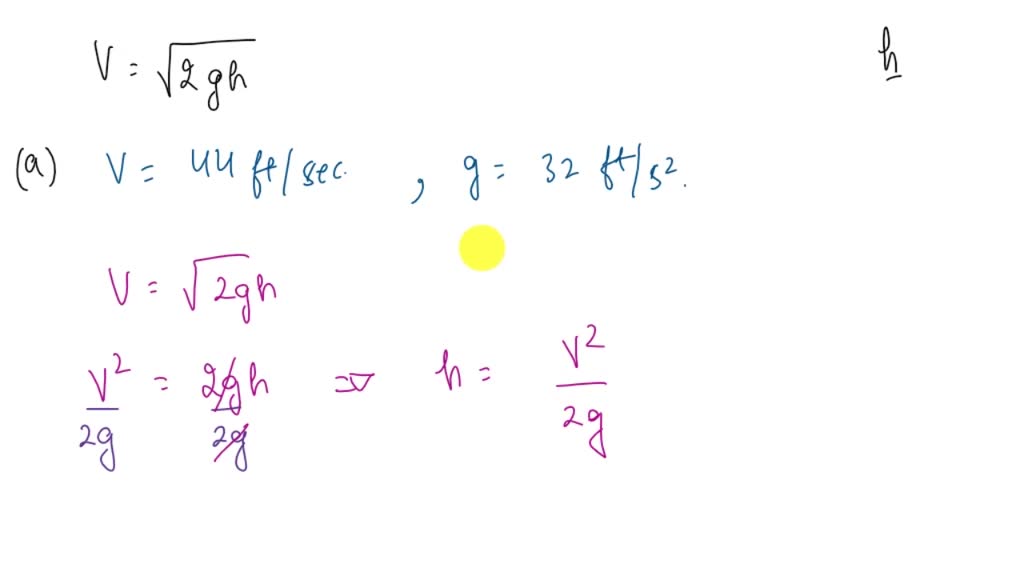 V = √2gh
h
(a) V = 44 ft/sec. , g = 32 ft/s².
V = √2gh
V²/2g = 2gh/2g ⇒ h = V²/2g